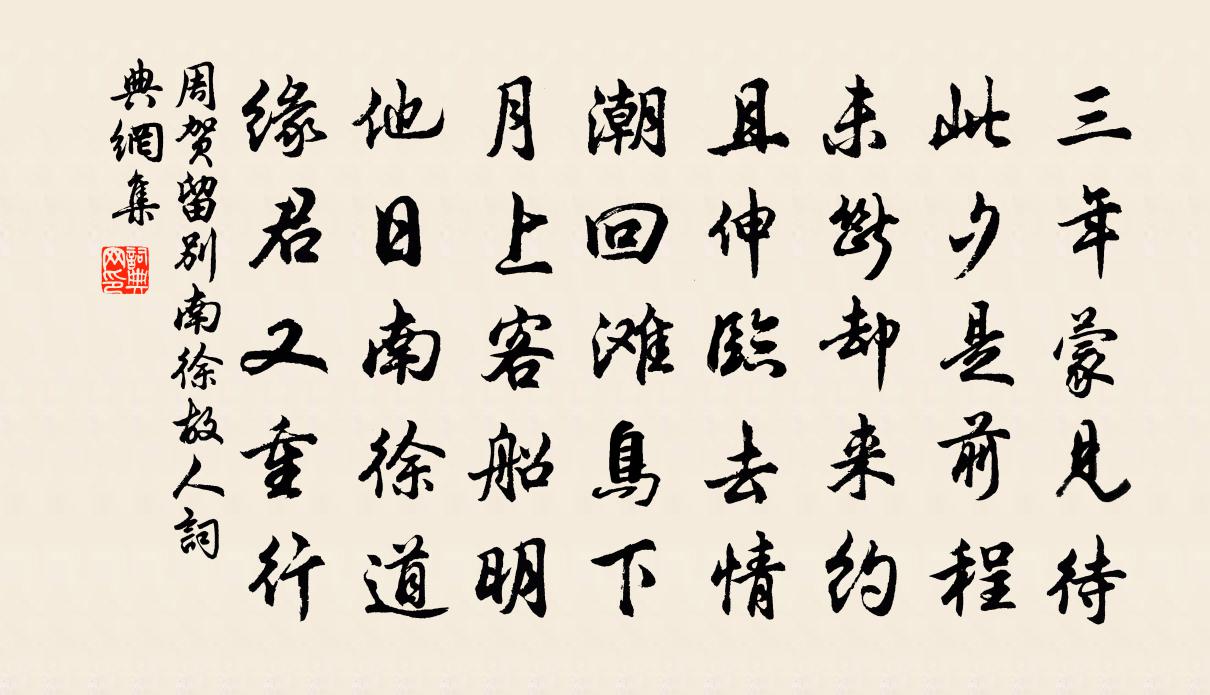 三年蒙見待
此夕是前程
未斷却来約
且伸臨去情
潮回滩鳥下
月上客船明
他日南徐道
緣君又重行
周贺留別南徐故人詞
典網集
詞典
网印